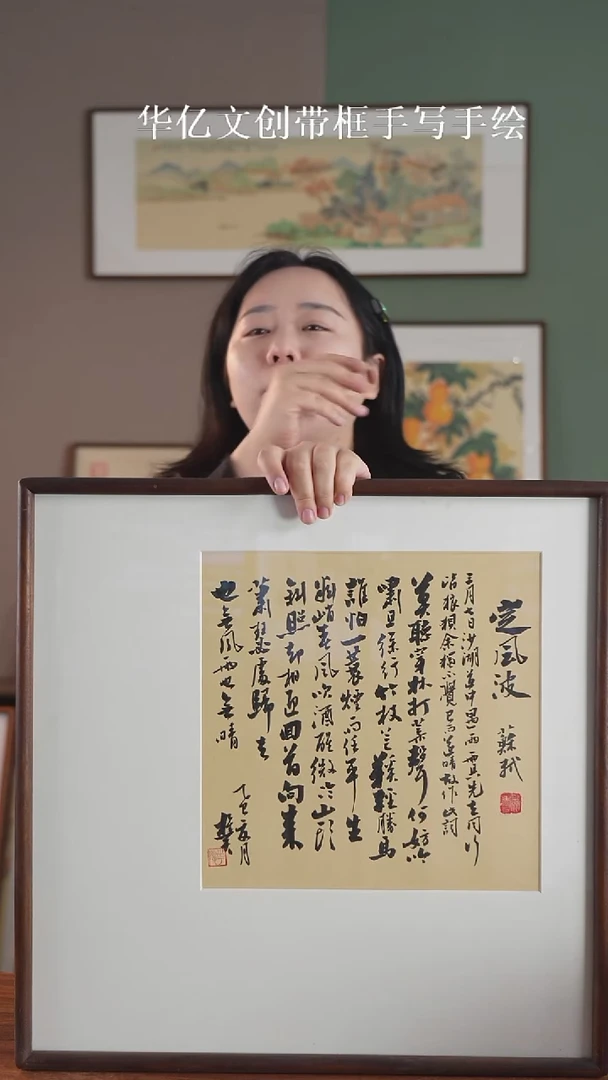 华亿文创带框手写手绘
定風波 蘇軾
三月七日沙湖道中遇雨雨具先去同行
皆狼狽余獨不覺已而遂晴故作此詞
莫聽穿林打葉聲何妨吟
嘯且徐行竹杖芒鞋輕勝馬
誰怕一蓑煙雨任平生
料峭春風吹酒醒微冷山頭
斜照却相迎回首向來
蕭瑟處歸去
也無風雨也無晴
乙巳夏月